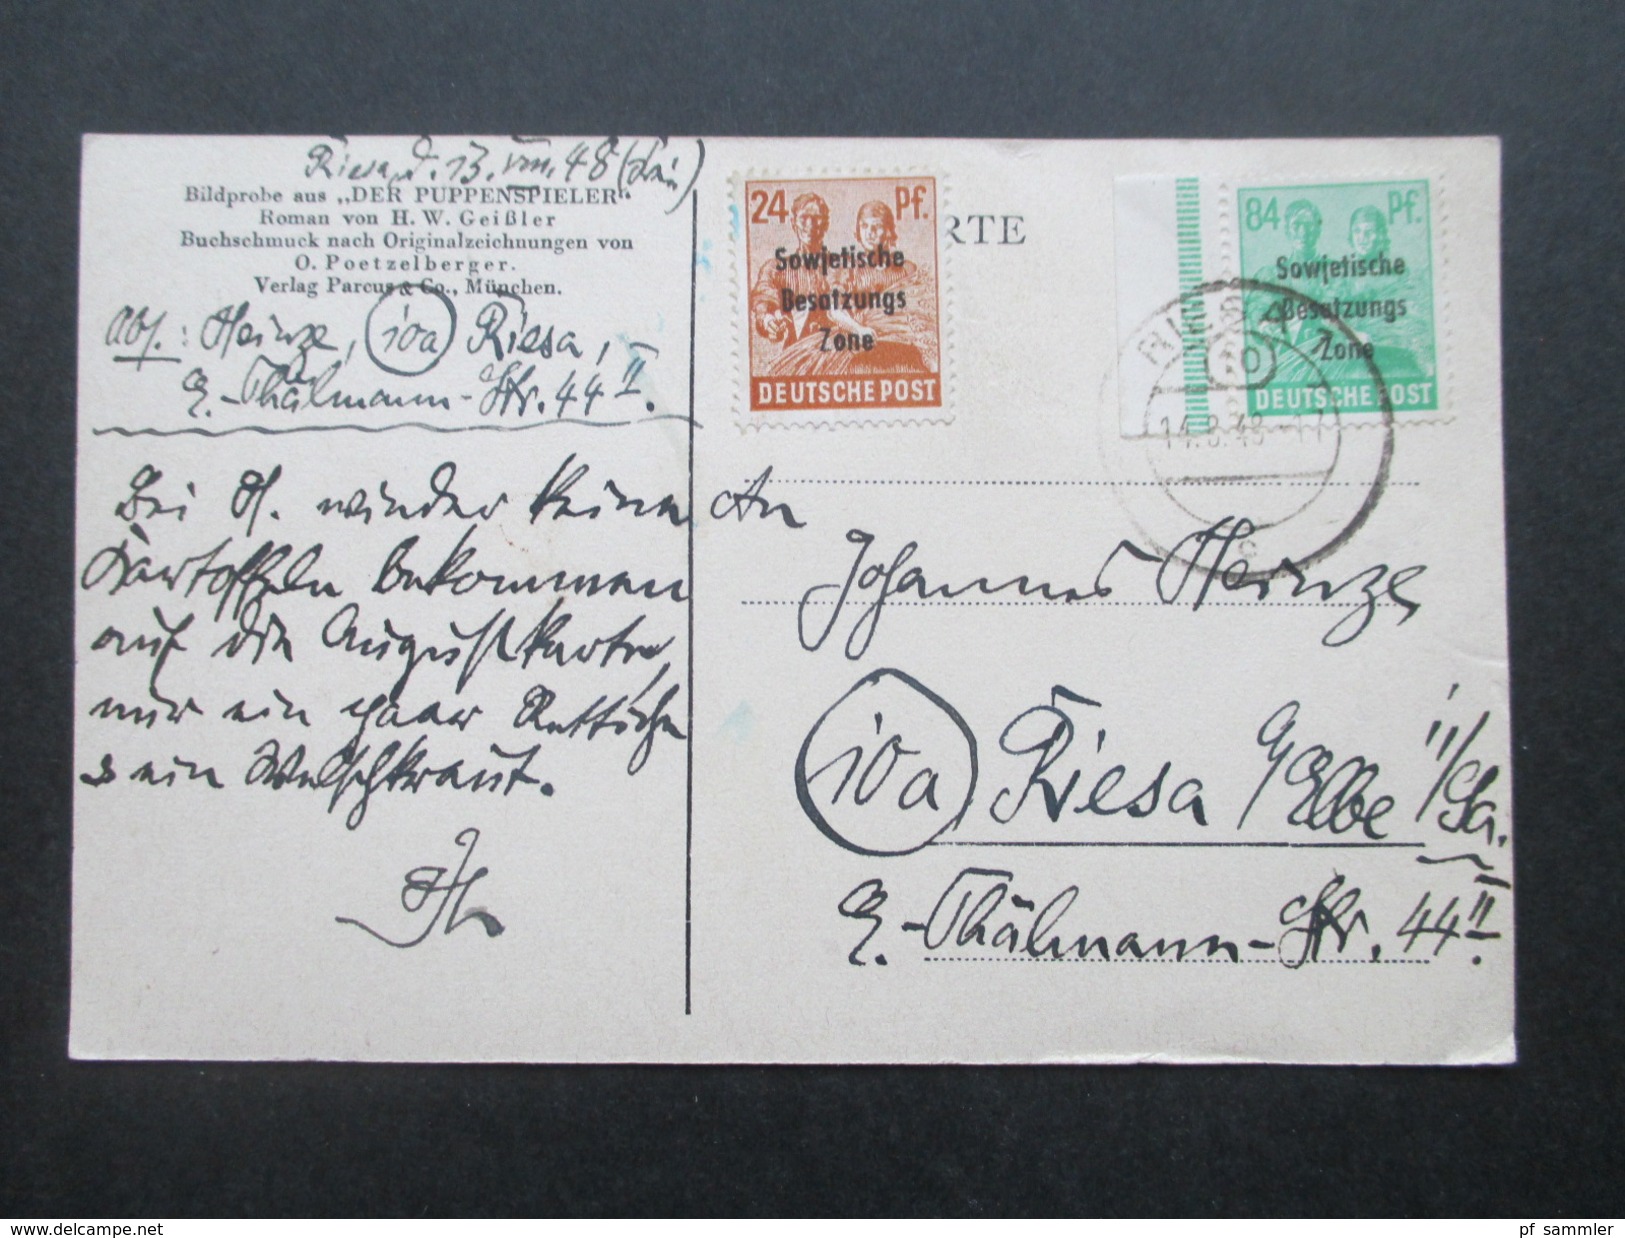 Riesa, d. 13. VIII. 48
Bildprobe aus „DER PUPPENSPIELER“
Roman von H. W. Geißler
Buchschmuck nach Originalzeichnungen von
O. Poetzelberger.
Verlag Parcus & Co., München.
Abs.: Heinze, 10a Riesa,
E.-Thälmann-Str. 44 II.
Bei H. wieder keine
Kartoffeln bekommen
auf die Augustkarte,
nur ein paar Rettiche
& ein Welschkraut.
24 Pf.
Sowjetische
Besatzungs
Zone
DEUTSCHE POST
RTE
84 Pf.
Sowjetische
Besatzungs
Zone
DEUTSCHE POST
RIESA
14.8.48
c
An
Johannes Heinze
10a Riesa/Elbe i/Sa.
E.-Thälmann-Str. 44 II.
http://www.delcampe.net
pf_sammler